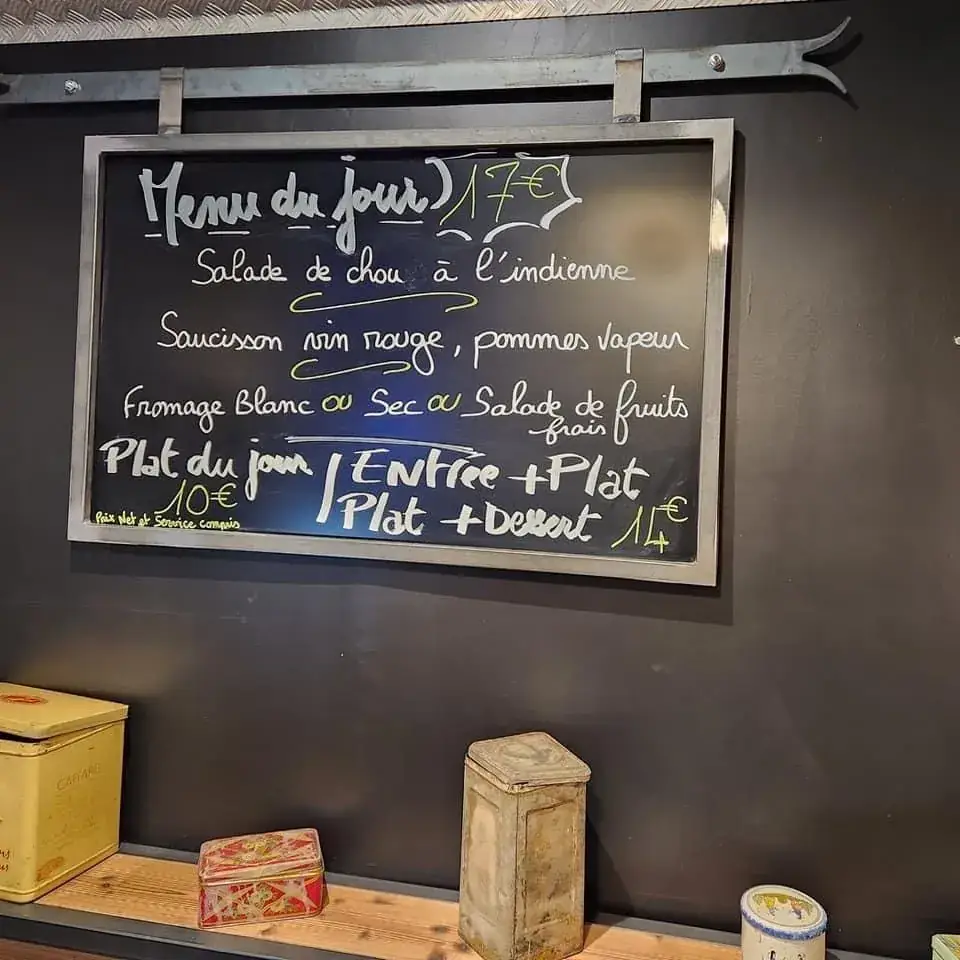 Menu du jour 17€
Salade de chou à l'indienne
Saucisson vin rouge, pommes vapeur
Fromage Blanc ou Sec ou Salade de fruits
frais
Plat du jour / Entrée + Plat
10€ Plat + Dessert 14€
Prix Net et Service compris